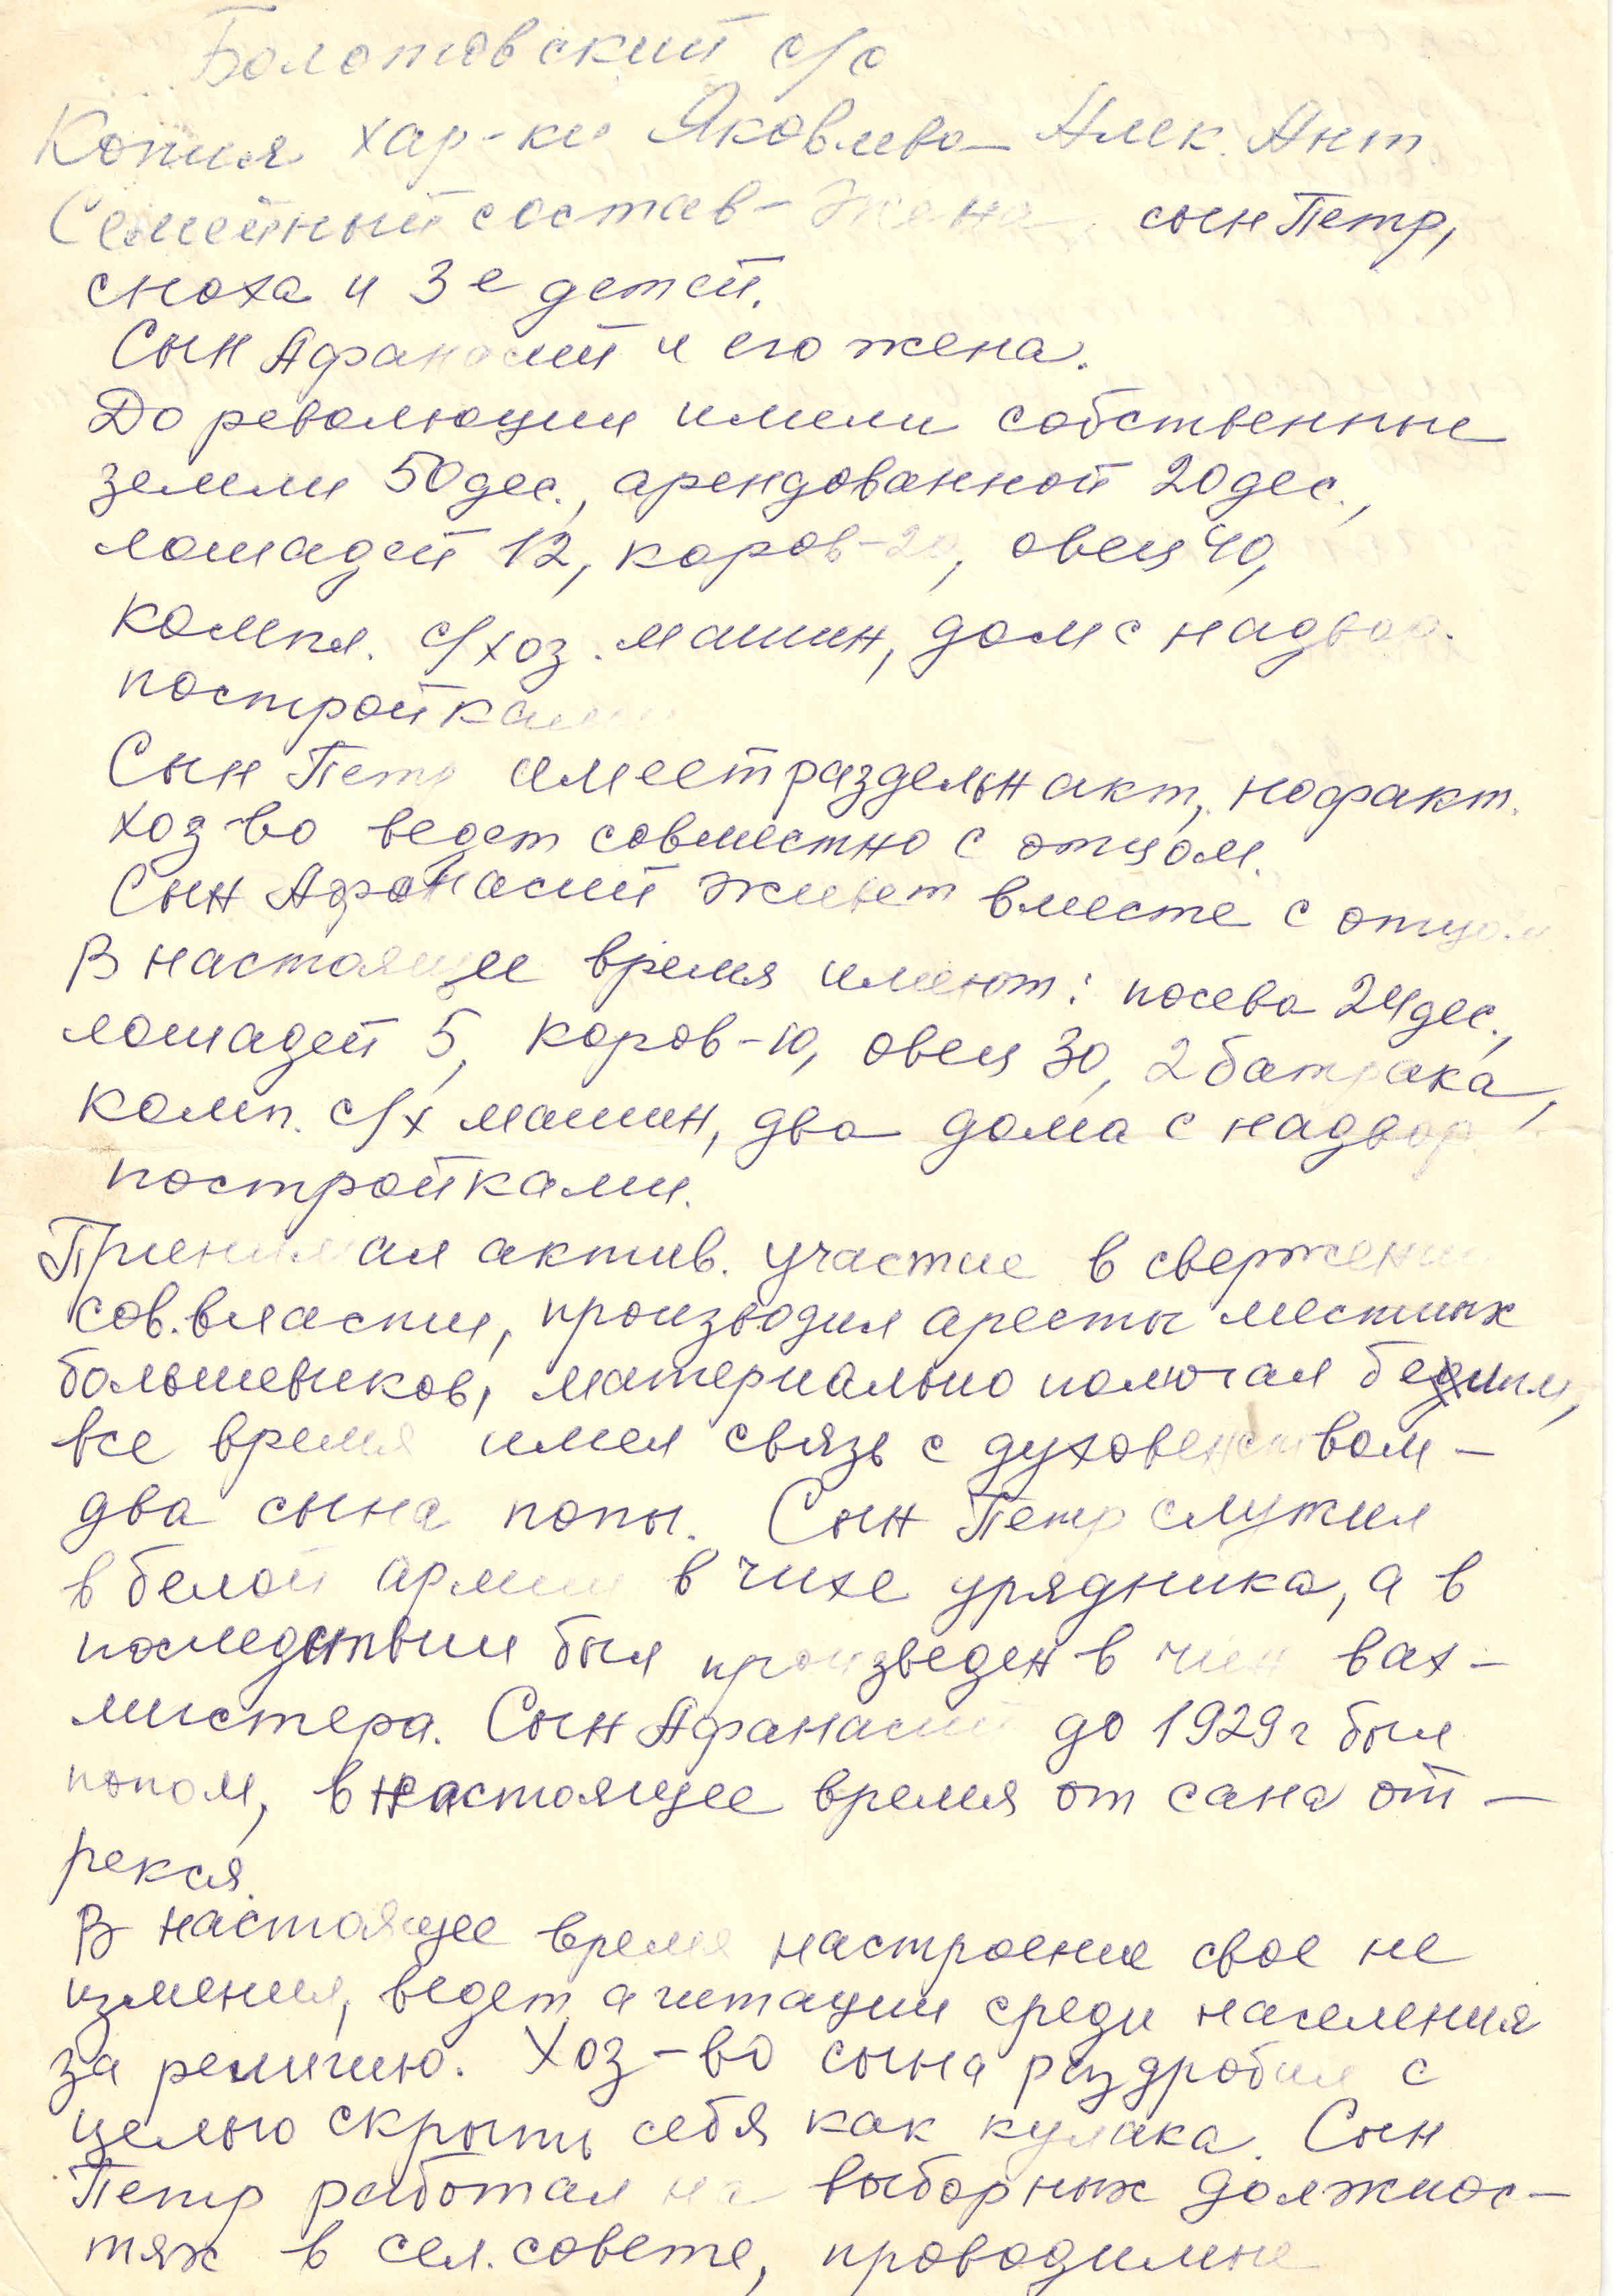 Болотовский с/с
Копия хар-ки Яковлева Алек. Ант.
Семейный состав - жена, сын Петр,
сноха и 3е детей.
Сын Афанасий и его жена.
До революции имели собственные
земли 50 дес., арендованной 20 дес.,
лошадей 12, коров - 20, овец 40,
компл. с/хоз. машин, дом с надвор.
постройками
Сын Петр имеет раздельн акт, но факт.
хоз-во ведет совместно с отцом.
Сын Афанасий живет вместе с отцом
В настоящее время имеют: посева 24 дес.,
лошадей 5, коров - 10, овец 30, 2 батрака,
комп. с/х машин, два дома с надвор.
постройками.
Принимал актив. участие в свержении
сов. власти, производил аресты местных
большевиков, материально помогал белым,
все время имел связь с духовенством -
два сына попы. Сын Петр служил
в белой армии в чихе урядника, а в
последствии был произведен в чин вах-
мистера. Сын Афанасий до 1929 г был
попом, в настоящее время от сана от-
рекся.
В настоящее время настроение свое не
изменил, ведет агитации среди населения
за религию. Хоз-во сына раздробил с
целью скрыть себя как кулака. Сын
Петр работал на выборных должнос-
тях в сел. совете, проводимые